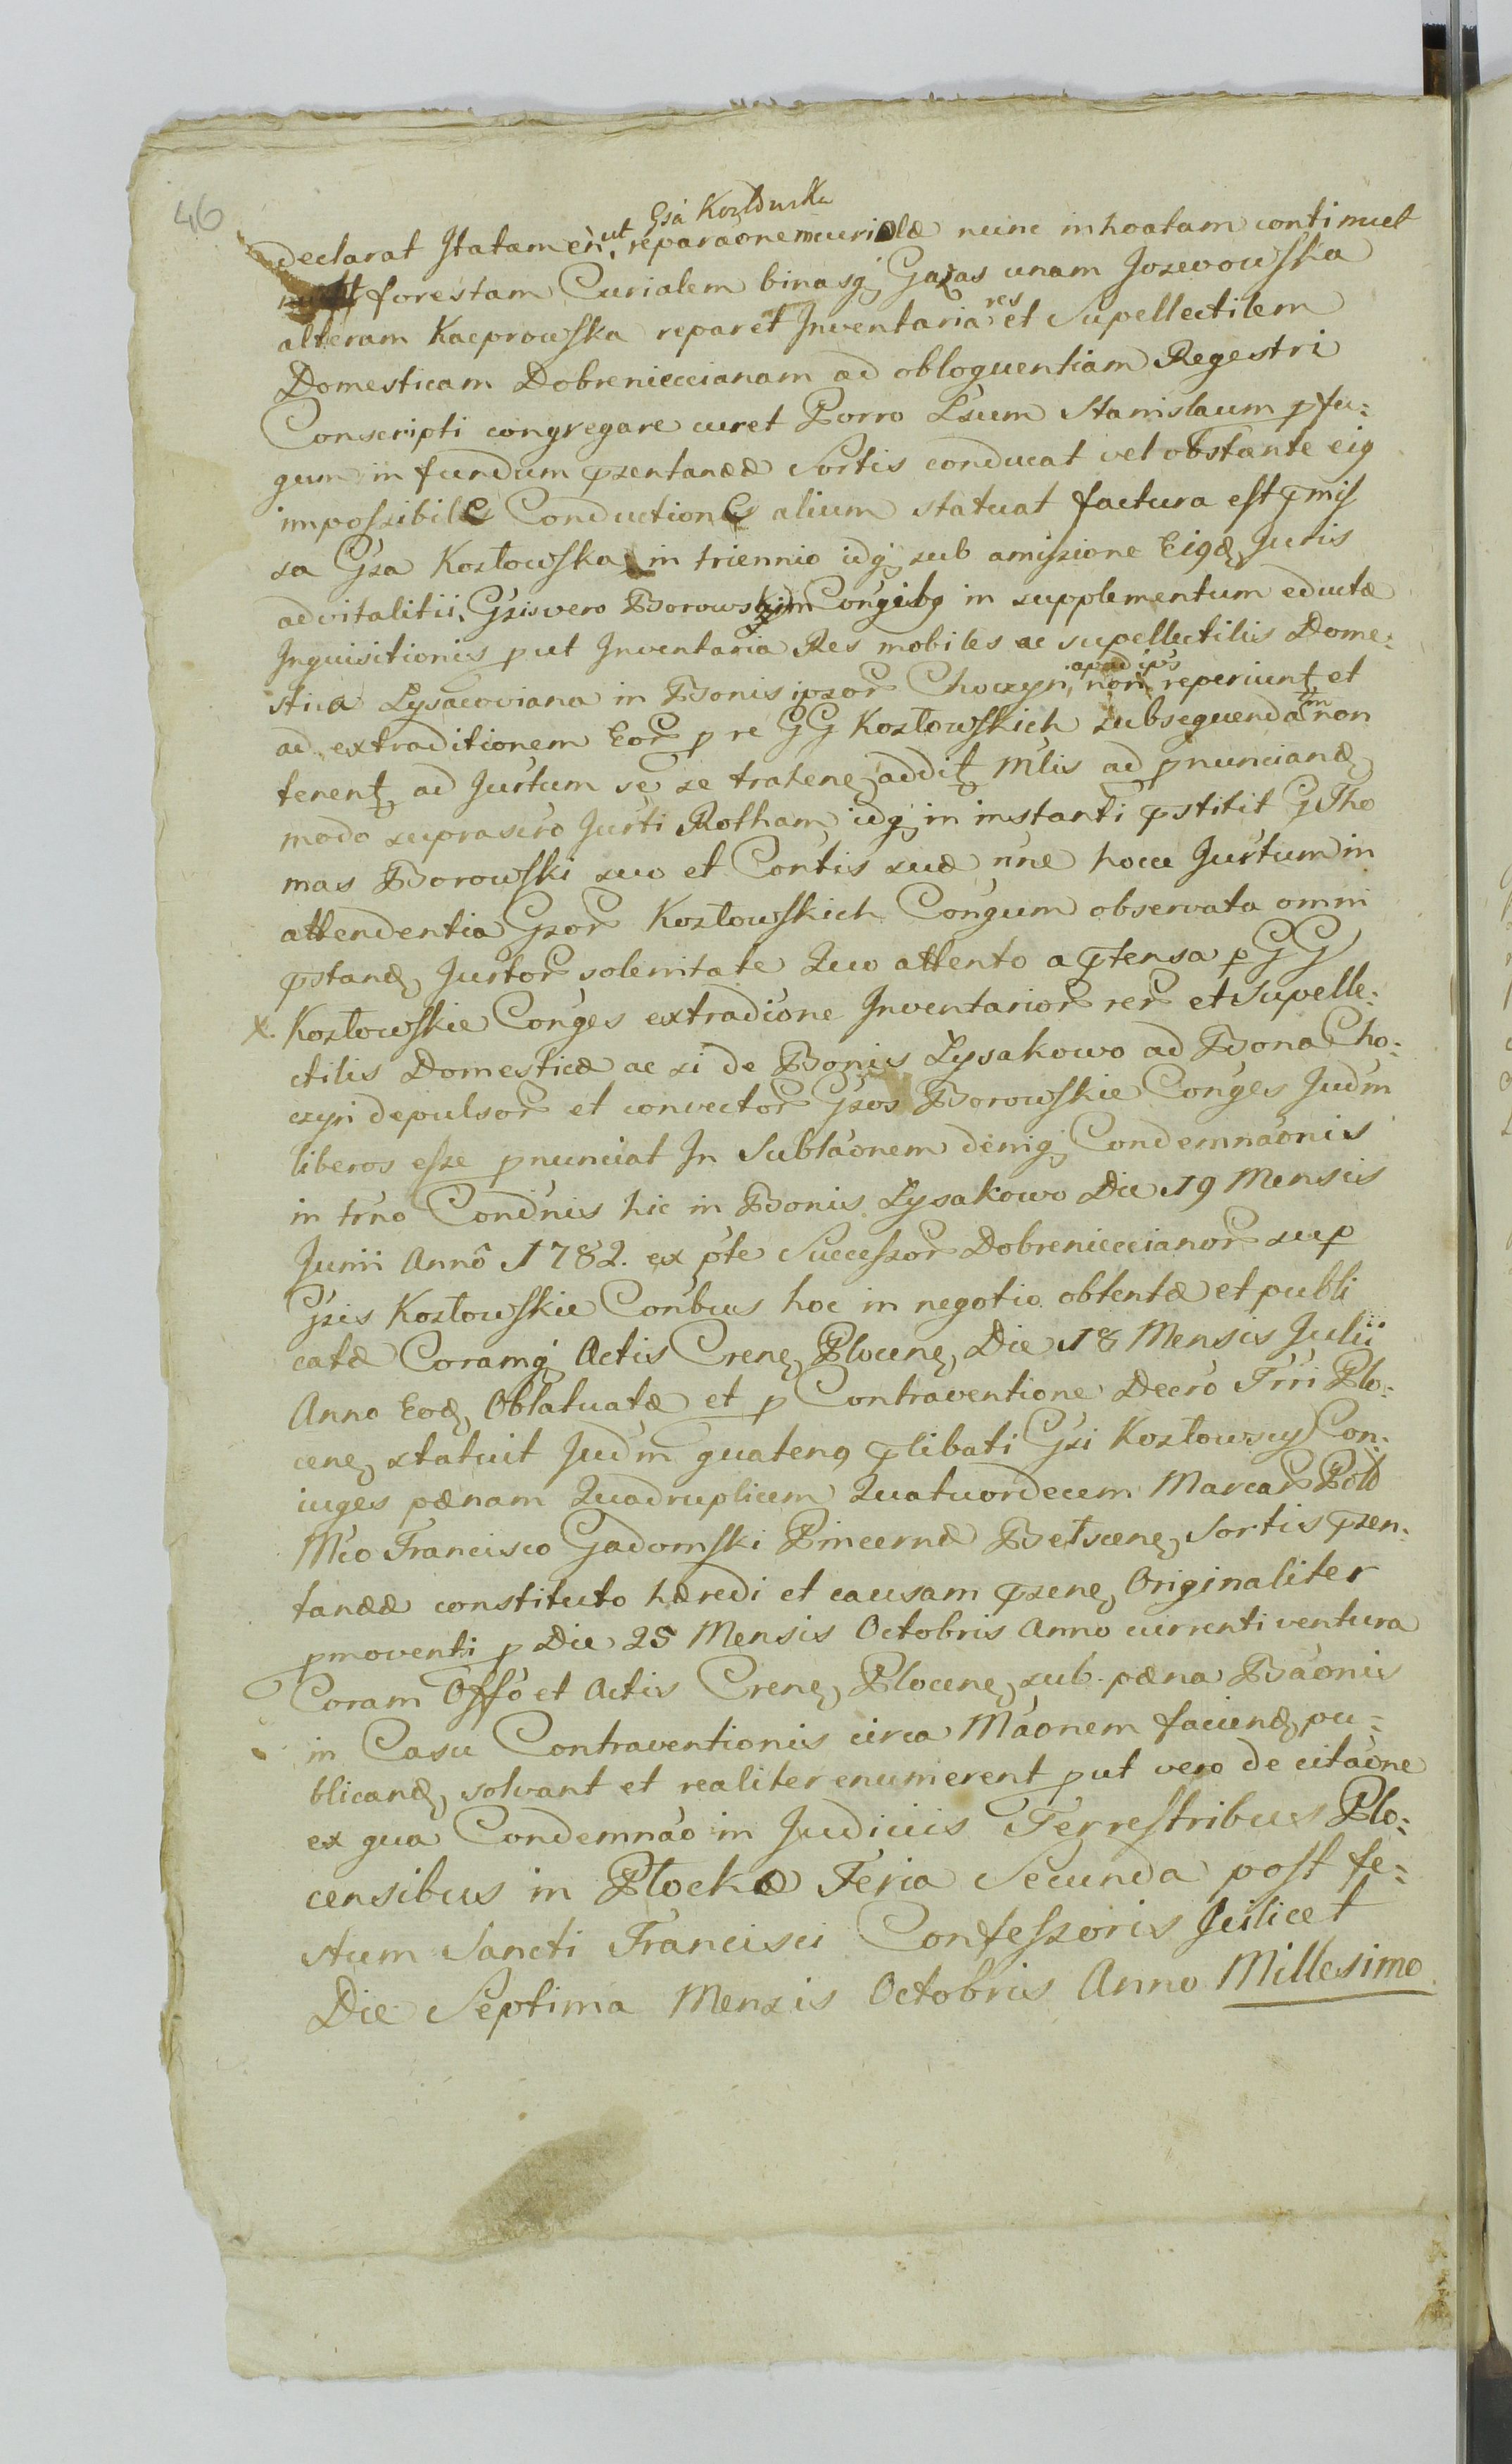 46
Gsa Kozłowska
declarat Itatamen ut reparãonem curiolæ nunc inhoatam continuet
forestam Curialem binasq; Gazas unam Jozwowska
alteram Kacprowska reparet Inventaria res et Supellectilem
Domesticam Dobrenieccianam ad obloquentiam Regestri
Conscripti congregare curet Porro Lsum Stanislaum pfu:
gum in fundum pzentaneæ Sortis conducat vel obstante eig
impossibile Conductione alium statuat factura est pmis
sa Gsa Kozłowska in triennio idq; sub amissione Eigd Juris
advitalitii. Gzis vero Borowskim Congibg in supplementum eductæ
Inquisitionis put Inventaria Res mobiles ac supellectilis Dome:
stica Lysacoviana in Bonis ipsor Choczyn, apud ips non reperiunt et
ad extraditionem Eor p re GG Kozłowskich subsequenda tm non
tenent ad Jurtum se se trahene addit Mlis ad pnunciand
modo suprascro Jurti Rotham idq; in instanti pstitit G Tho
mas Borowski suo et Contis suæ nne hocce Jurtum in
attendentia Gsor Kozłowskich Congum observata omni
pstand Jurtor solennitate Quo attento a ptensa p GG
x. Kozłowskie Conges extradione Inventarior rer et Supelle:
ctilis Domesticæ ac si de Bonis Lysakowo ad Bona Cho:
czyn depulsor et convector Gsos Borowskie Conges Judm
liberos esse pnunciat In Sublãonem deniq; Condemnãonis
in trno Condnis hic in Bonis Lysakowo Die 19 Mensis
Junii Annô 1782. ex pte Successor Dobrenieccianor sup
Gsis Kozłowskie Conbus hoc in negotio obtentæ et publi
catæ Coramq; Actis Crene Plocene Die 18 Mensis Julii
Anno Eod Oblatuatæ et p Contraventione Decro Trri Plo:
cene statuit Judm quateng plibati Gsi Kozłowscy Con:
iuges pænam Quadruplicem Quatuordecem Marcar Pold
Mco Francisco Gadomski Pincernæ Betscene Sortis pzen:
taneæ constituto hæredi et causam pzene Originaliter
pmoventi p Die 25 Mensis Octobris Anno currenti ventura
Coram Offo et Actis Crene Plocene sub pæna Bãonis
in Casu Contraventionis circa Mãonem faciend pu:
blicand solvant et realiter enumerent put vero de citãone
ex qua Condemnão in Judiciis Terrestribus Plo:
censibus in Plockæ Feria Secunda post fe:
stum Sancti Francisci Confessoris scilicet
Die Septima Mensis Octobris Anno Millesimo